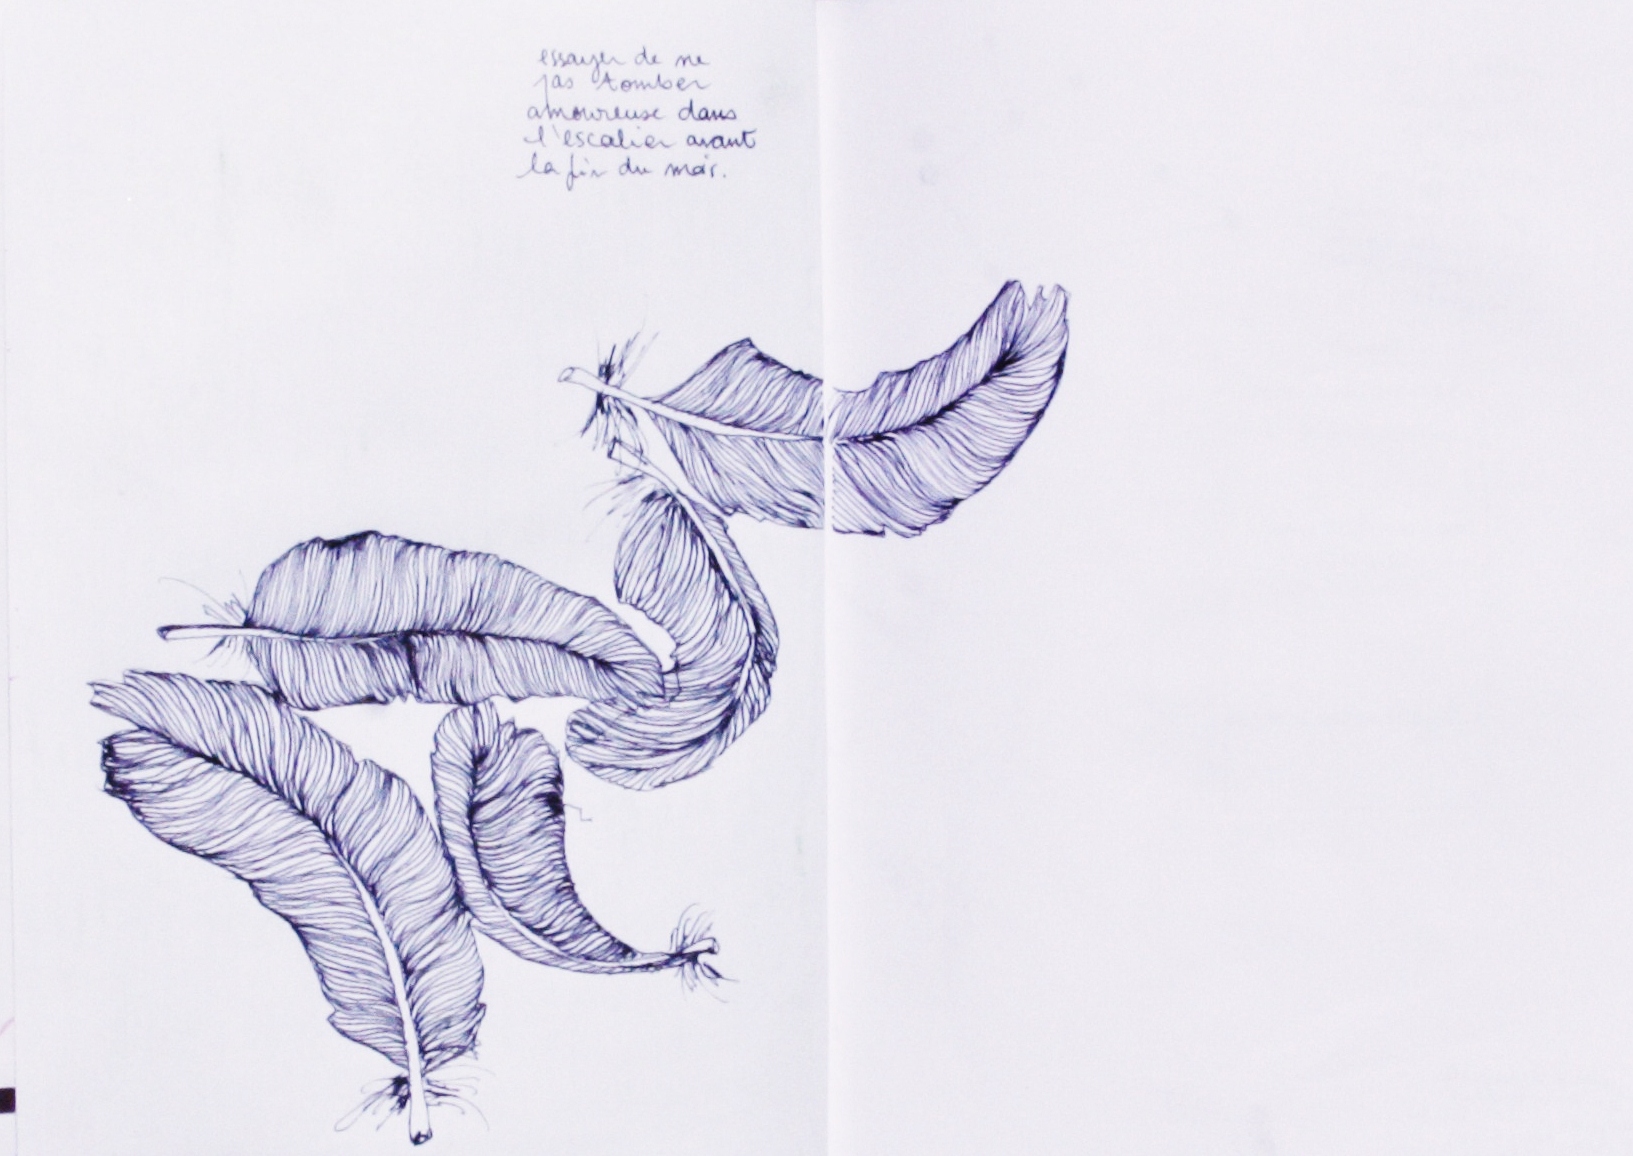 essayer de ne
pas tomber
amoureuse dans
l'escalier avant
la fin du mois.